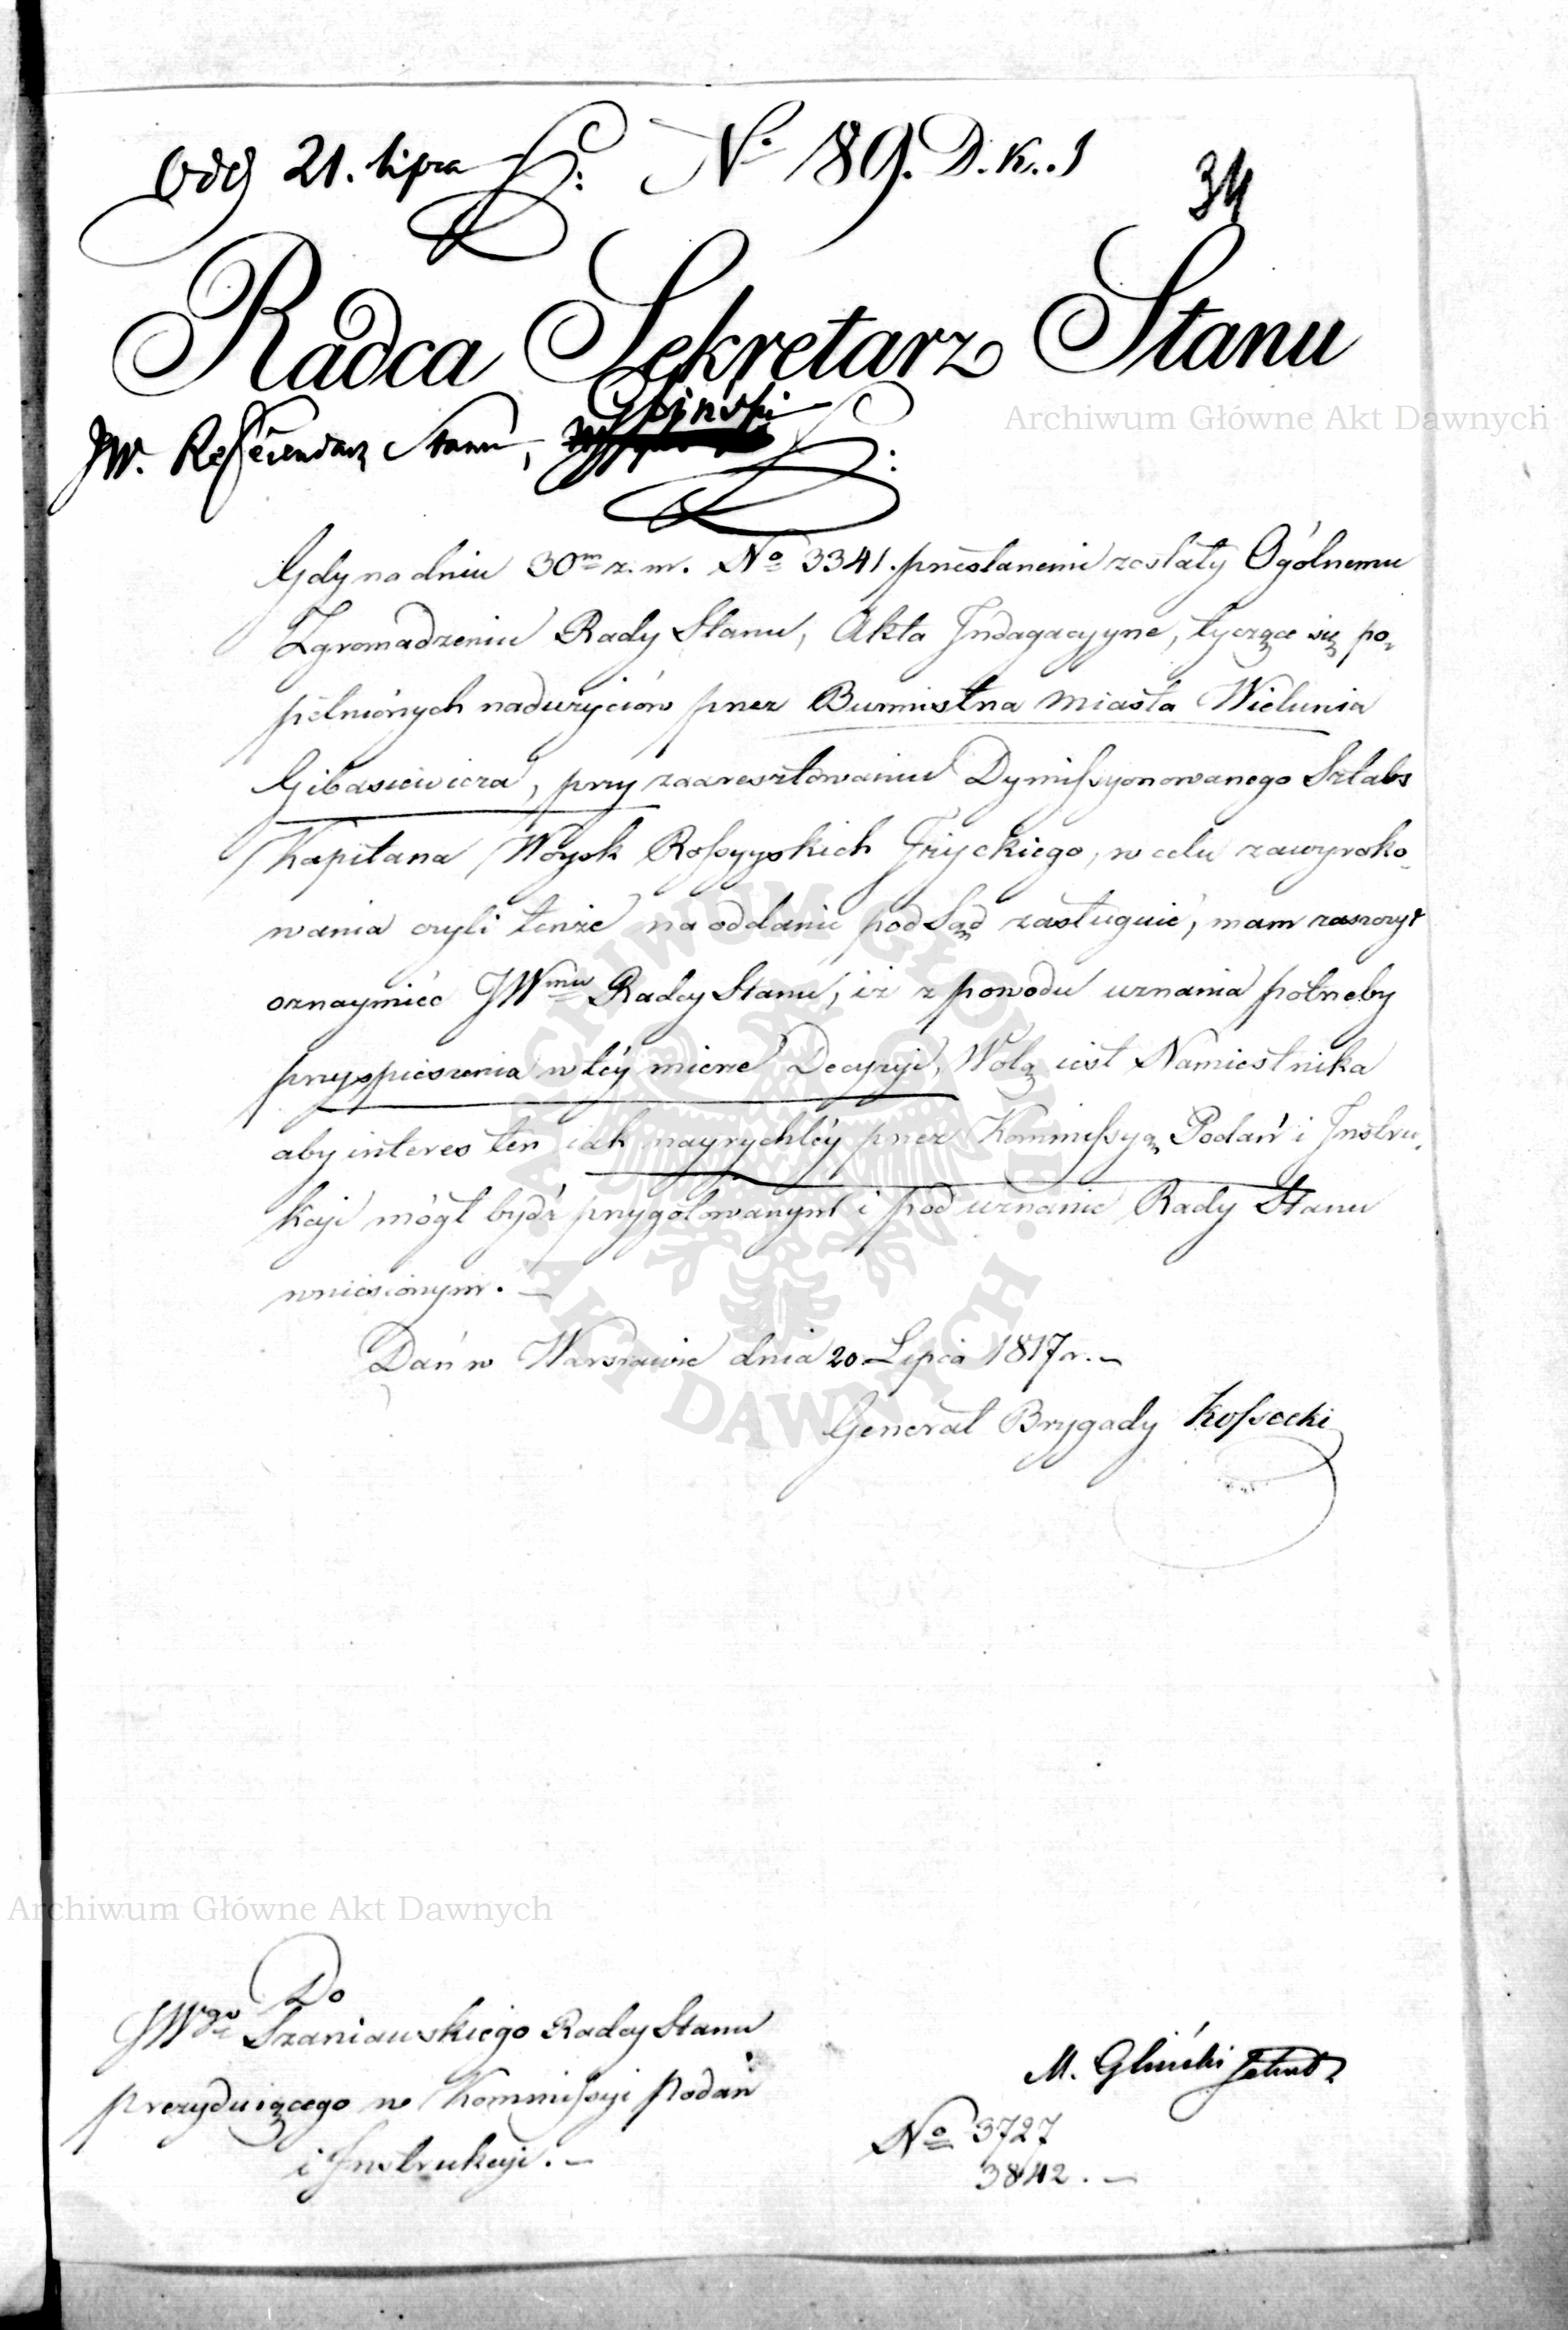 Odd 21. lipca N° 189. D. K. S
34
Radca Sekretarz Stanu
JW. Referendarz Stanu,
Gdy na dniu 30m z. m. No 3341. przesłanemi zostały Ogólnemu
Zgromadzeniu Rady Stanu, Akta Indagacyyne, tyczące się po-
pełnionych nadużyciów przez Burmistrza Miasta Wielunia
Gibasiewicza, przy zaaresztowaniu Dymissyonowanego Sztabs
Kapitana Woysk Rossyyskich Iżyckiego, w celu zawyroko-
wania czyli tenże na oddanie pod Sąd zasługuie, mam zaszczyt
oznaymić JWmu Radcy Stanu, iż z powodu uznania potrzeby
przyspieszenia w téy mierze Decyzyi, Wolą iest Namiestnika
aby interes ten iak nayrychléy przez Kommissyą Podań i Instru-
kcyi mógł bydź przygotowanym i pod uznanie Rady Stanu
wniesionym. —
Dań w Warszawie dnia 20 Lipca 1817 r. —
Generał Brygady Kossecki
Do
JWgo Szaniawskiego Radcy Stanu
prezyduiącego w Kommissyi Podań
i Instrukcyi. —
M. Gliński
No 3727
3842. —
Archiwum Główne Akt Dawnych
Archiwum Główne Akt Dawnych
ARCHIWUM GŁÓWNE · AKT DAWNYCH ·